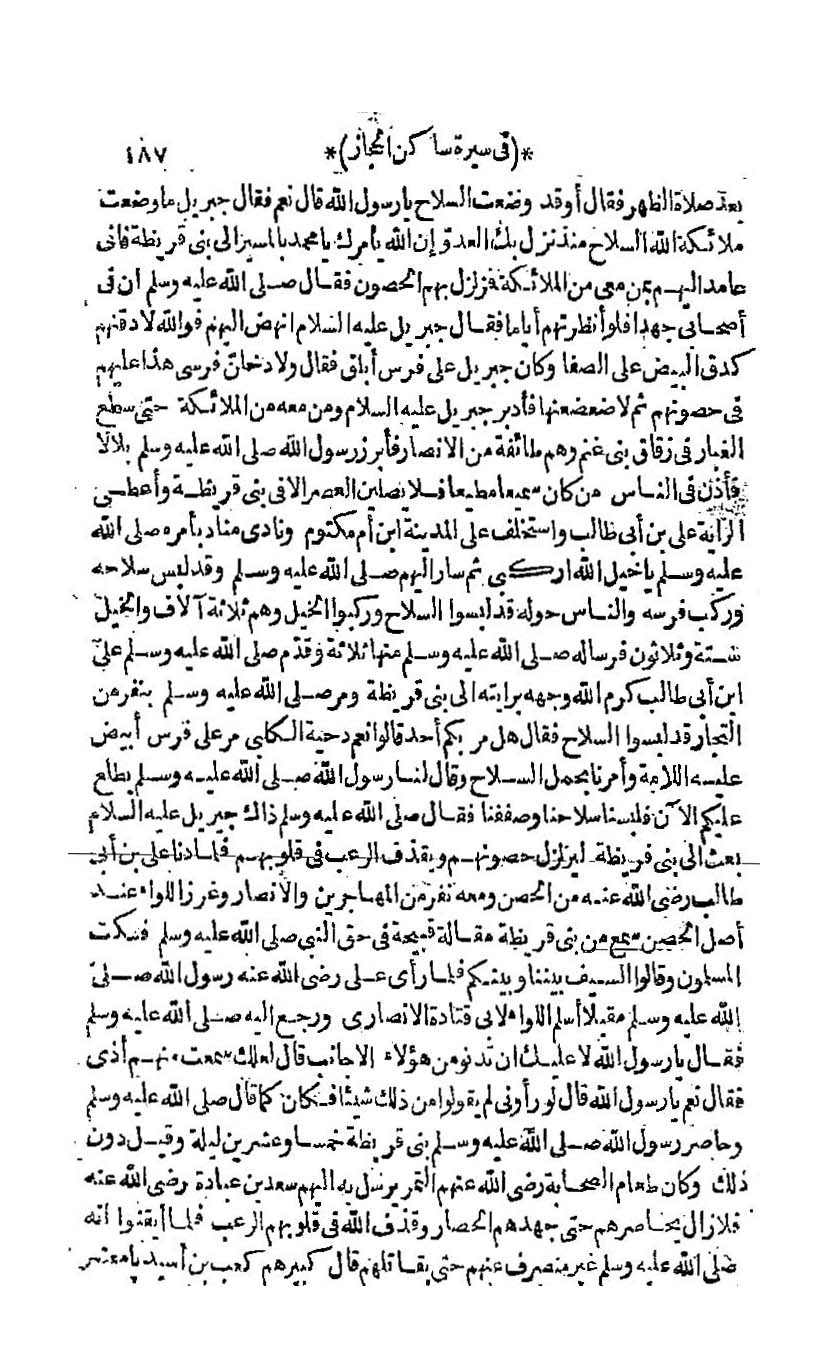 *(في سيرة ساكن الحجاز)* ١٨٧
بعد صلاة الظهر فقال أوقد وضعت السلاح يارسول الله قال نعم فقال جبريل ما وضعت
ملائكة الله السلاح منذ نزل بك العدو إن الله يأمرك يا محمد بالمسير الى بنى قريظة فانى
عامد اليهم بمن معى من الملائكة فزلزل بهم الحصون فقال صلى الله عليه وسلم ان فى
أصحابى جهدا فلو أنظرتهم أياما فقال جبريل عليه السلام انهض اليهم فوالله لادقنهم
كدق البيض على الصفا وكان جبريل على فرس أبلق فقال ولادخلن فرسى هذا عليهم
فى حصونهم ثم لاضعضعنها فأدبر جبريل عليه السلام ومن معه من الملائكة حتى سطع
الغبار فى زقاق بنى غنم وهم طائفة من الانصار فأبرز رسول الله صلى الله عليه وسلم بلالا
فأذن فى الناس من كان سميعا مطيعا فلا يصلين العصر الا فى بنى قريظة وأعطى
الراية على بن أبى طالب واستخلف على المدينة ابن أم مكتوم ونادى مناد بأمره صلى الله
عليه وسلم ياخيل الله اركبى ثم سار اليهم صلى الله عليه وسلم وقد لبس سلاحه
وركب فرسه والناس حوله قد لبسوا السلاح وركبوا الخيل وهم ثلاثة آلاف والخيل
ستة وثلاثون فرسا له صلى الله عليه وسلم منها ثلاثة وقدم صلى الله عليه وسلم علىّ
ابن أبى طالب كرم الله وجهه برايته الى بنى قريظة ومر صلى الله عليه وسلم بنفر من
النجار قد لبسوا السلاح فقال هل مر بكم أحد قالوا نعم دحية الكلبى مر على فرس أبيض
عليه اللامة وأمرنا بحمل السلاح وقال لنا رسول الله صلى الله عليه وسلم يطلع
عليكم الآن فلبسنا سلاحنا وصففنا فقال صلى الله عليه وسلم ذاك جبريل عليه السلام
بعث الى بنى قريظة ليزلزل حصونهم ويقذف الرعب فى قلوبهم فلما دنا على بن أبى
طالب رضى الله عنه من الحصن ومعه نفر من المهاجرين والأنصار وغرز اللواء عند
أصل الحصن سمع من بنى قريظة مقالة قبيحة فى حق النبى صلى الله عليه وسلم فسكت
المسلمون وقالوا السيف بيننا وبينكم فلما رأى على رضى الله عنه رسول الله صلى
الله عليه وسلم مقبلا أسلم اللواء لابى قتادة الانصارى ورجع اليه صلى الله عليه وسلم
فقال يارسول الله لا عليك ان تدنو من هؤلاء الاخابث قال لعلك سمعت منهم أذى
فقال نعم يارسول الله قال لو رأونى لم يقولوا من ذلك شيئا فكان كما قال صلى الله عليه وسلم
وحاصر رسول الله صلى الله عليه وسلم بنى قريظة خمسا وعشرين ليلة وقيل دون
ذلك وكان طعام الصحابة رضى الله عنهم التمر يرسل به اليهم سعد بن عبادة رضى الله عنه
فلازال يحاصرهم حتى جهدهم الحصار وقذف الله فى قلوبهم الرعب فلما أيقنوا انه
صلى الله عليه وسلم غير منصرف عنهم حتى يقاتلهم قال كبيرهم كعب بن أسيد يا معشر